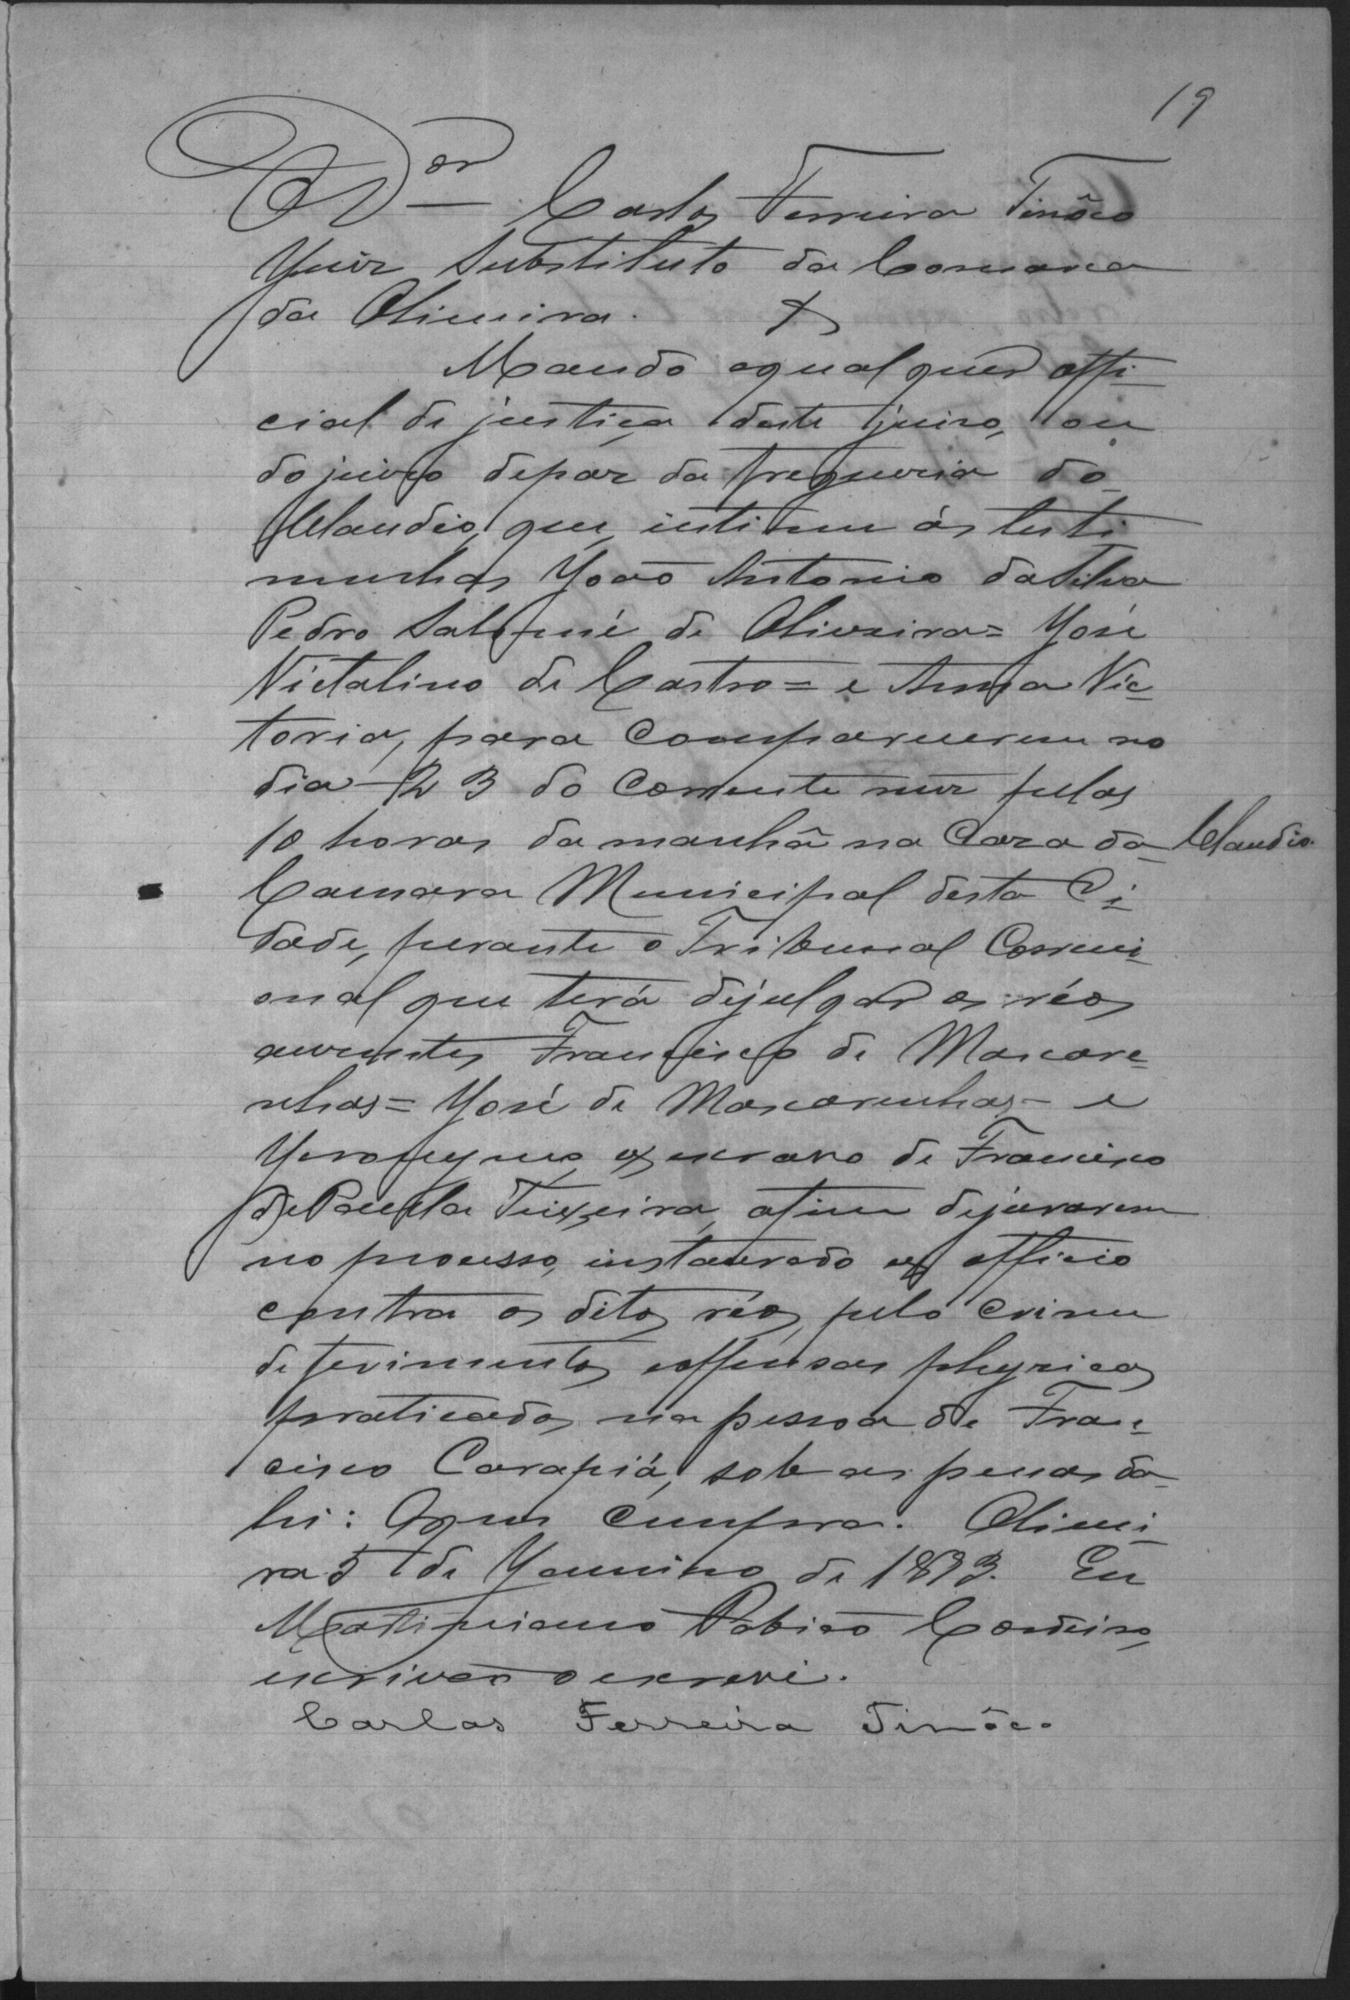 19
O Dor Carlos Ferreira Tinôco
Juiz Substituto da Comarca
da Oliveira. &
Mando aqualquer offi-
cial de justiça deste juizo, ou
do juizo depaz da freguezia do
Claudio, que intime ás teste
munhas João Antonio daSilva
Pedro Salomé de Oliveira= José
Victalino de Castro= e Anna Vic-
toria, para comparecerem no
dia 23 do corrente mez pelas
10 horas da manhã na Caza da Claudio.
Camara Municipal desta Ci-
dade, perante o Tribunal Correci-
onal que terá dejulgar os réos
auzentes Francisco de Mascare-
nhas= José de Mascarenhas= e
Jeronymo, ex escravo de Francisco
de Paula Teixeira, afim dejurarem
no processo, instaurado ex officio
contra os ditos réos, pelo crime
de ferimentos e offensas physicas
praticados na pessoa de Fran-
cisco Carapiá, sob as penas da
lei: O que cumpra. Olivei-
ra 5 de Janeiro de 1893. Eu
Martiniano Cordeiro,
escrivão o escrevi.
Carlos Ferreira Tinôco